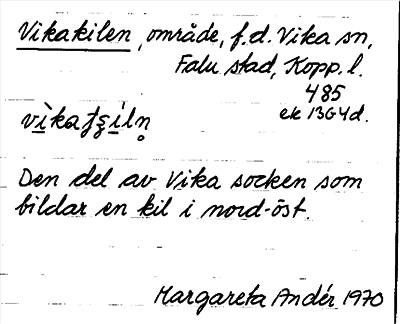 Vikakilen, område, f.d. Vika sn,
Falu stad, Kopp. l.
485
ek 13G4d.
Den del av Vika socken som
bildar en kil i nord-öst.
Margareta Andér 1970